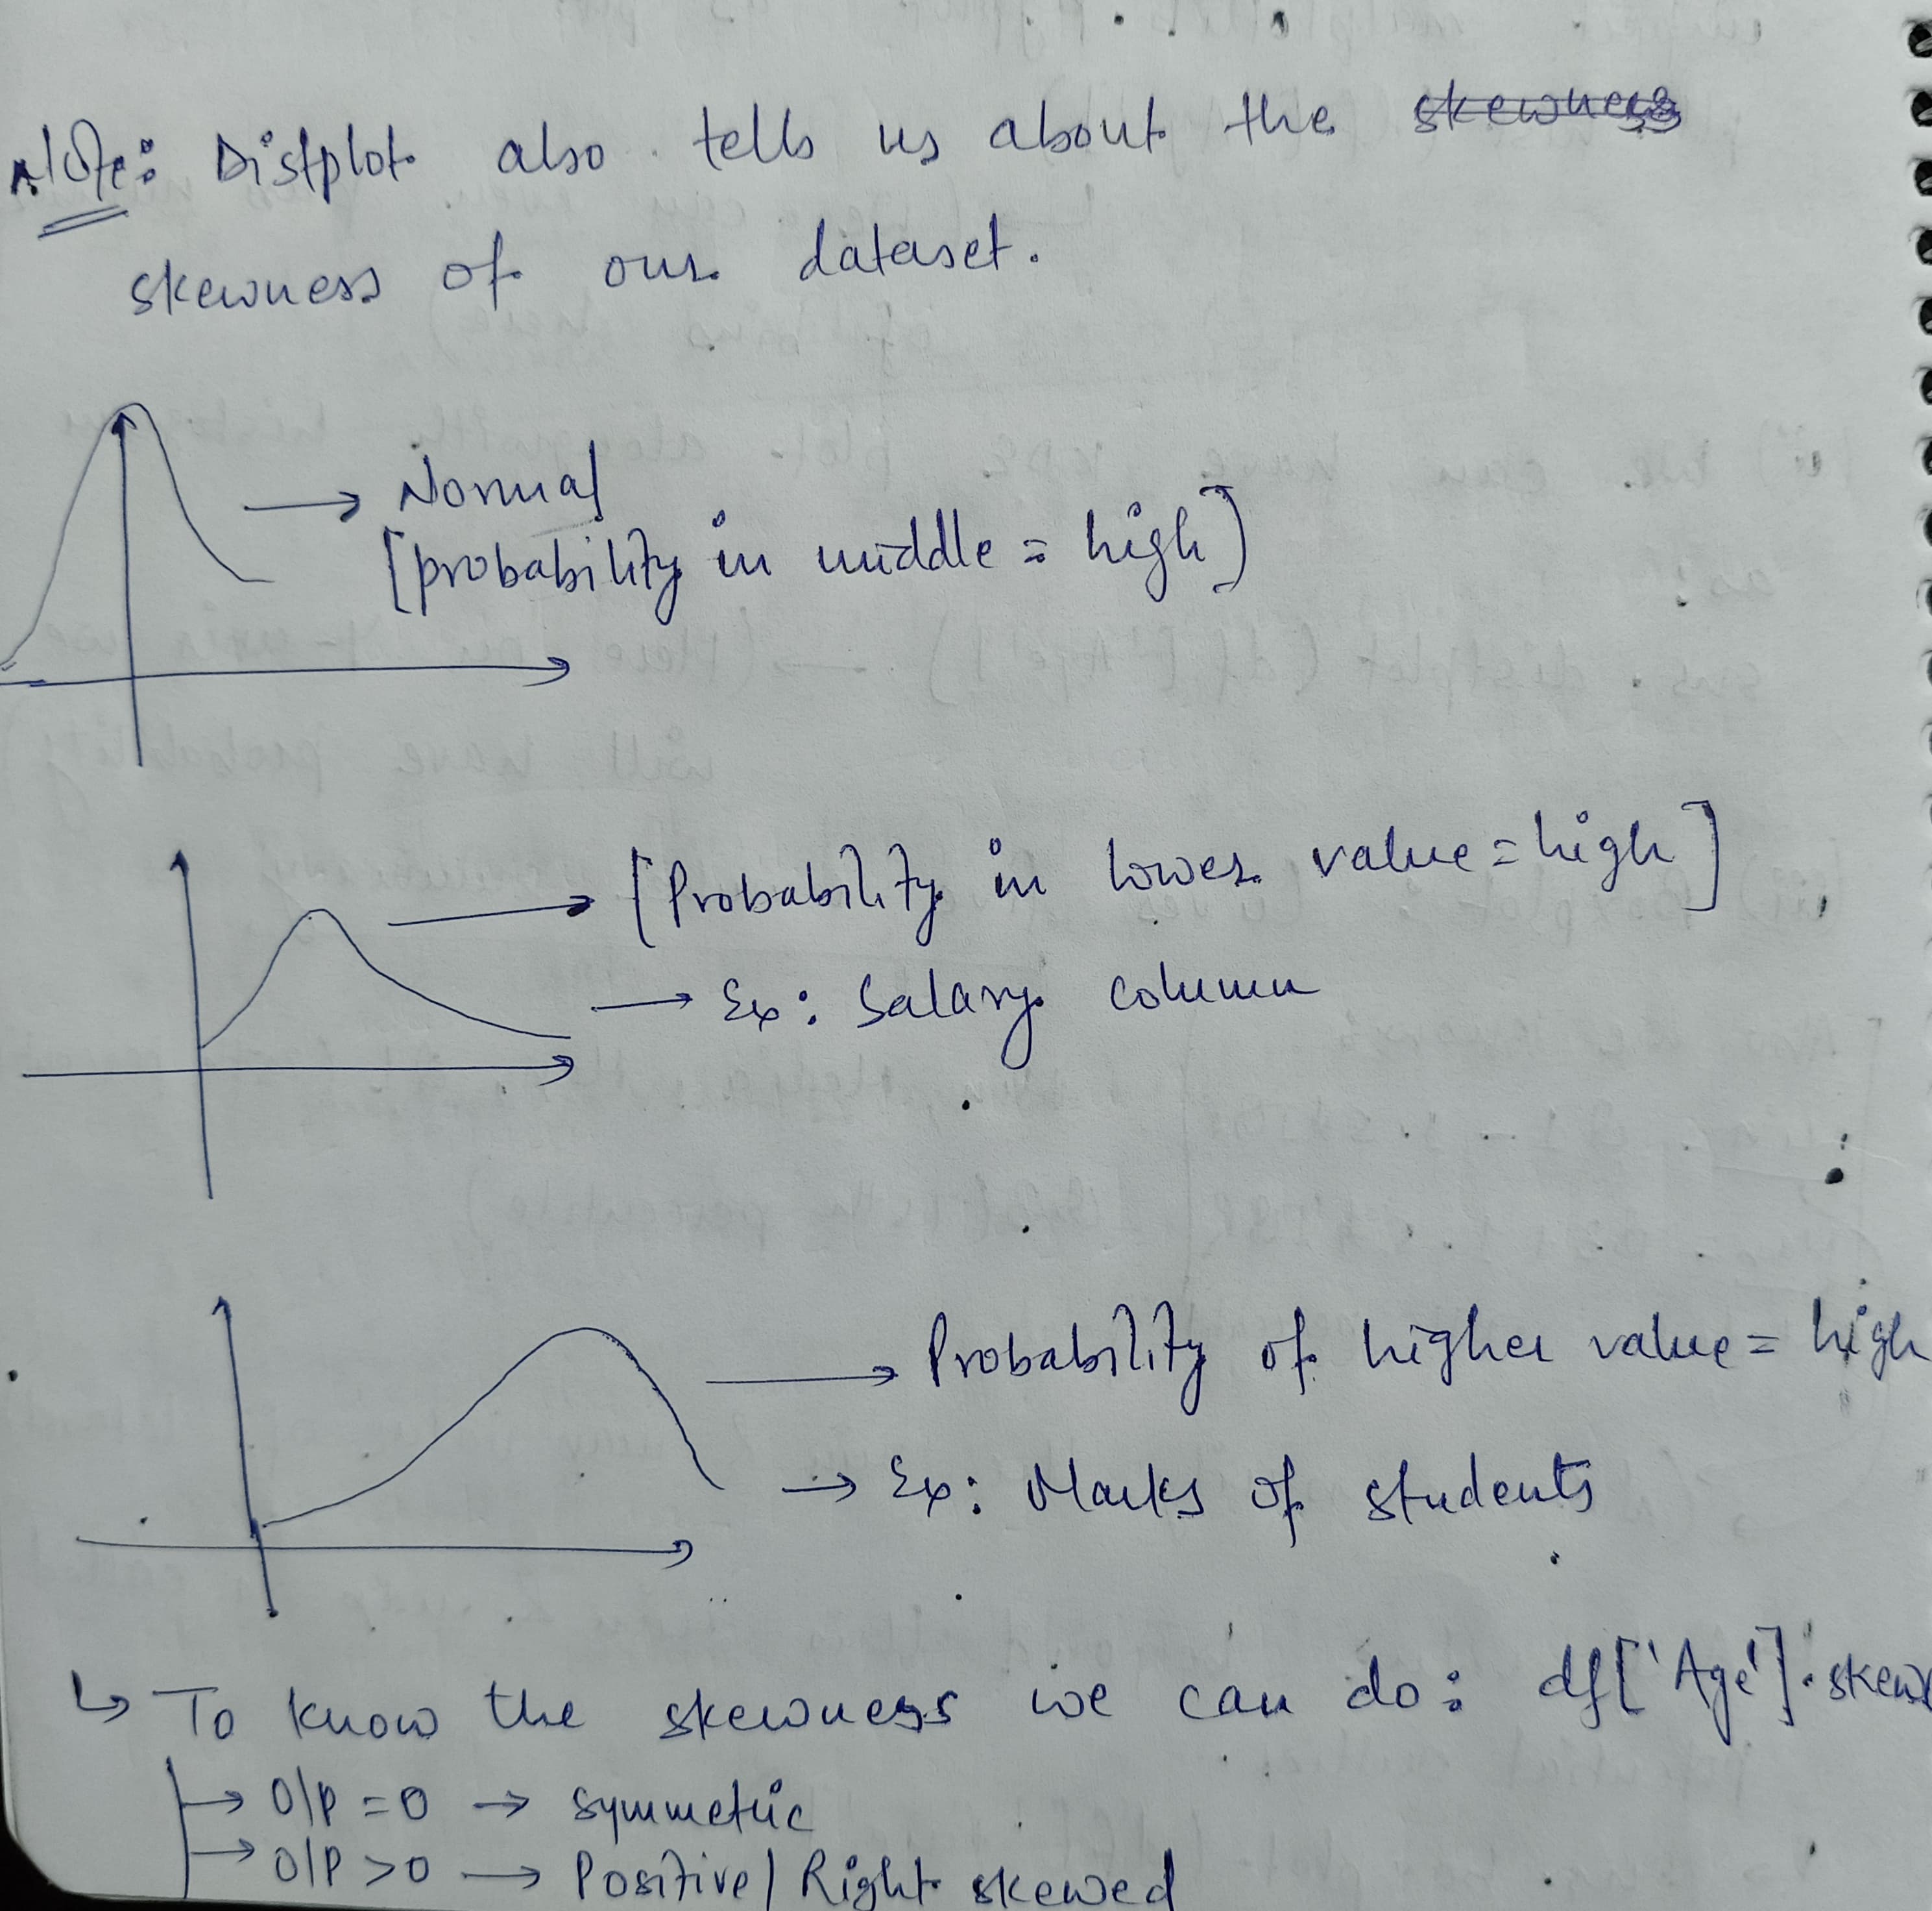 Note: Distplot also tells us about the skewness
skewness of our dataset.
→ Normal
[probability in middle = high]
→ [Probability in lower value = high]
→ Ex: Salary column
→ Probability of higher value = high
→ Ex: Marks of students
↳ To know the skewness we can do: df['Age'].skew
→ O/P = 0 → symmetric
→ O/P > 0 → Positive/Right skewed